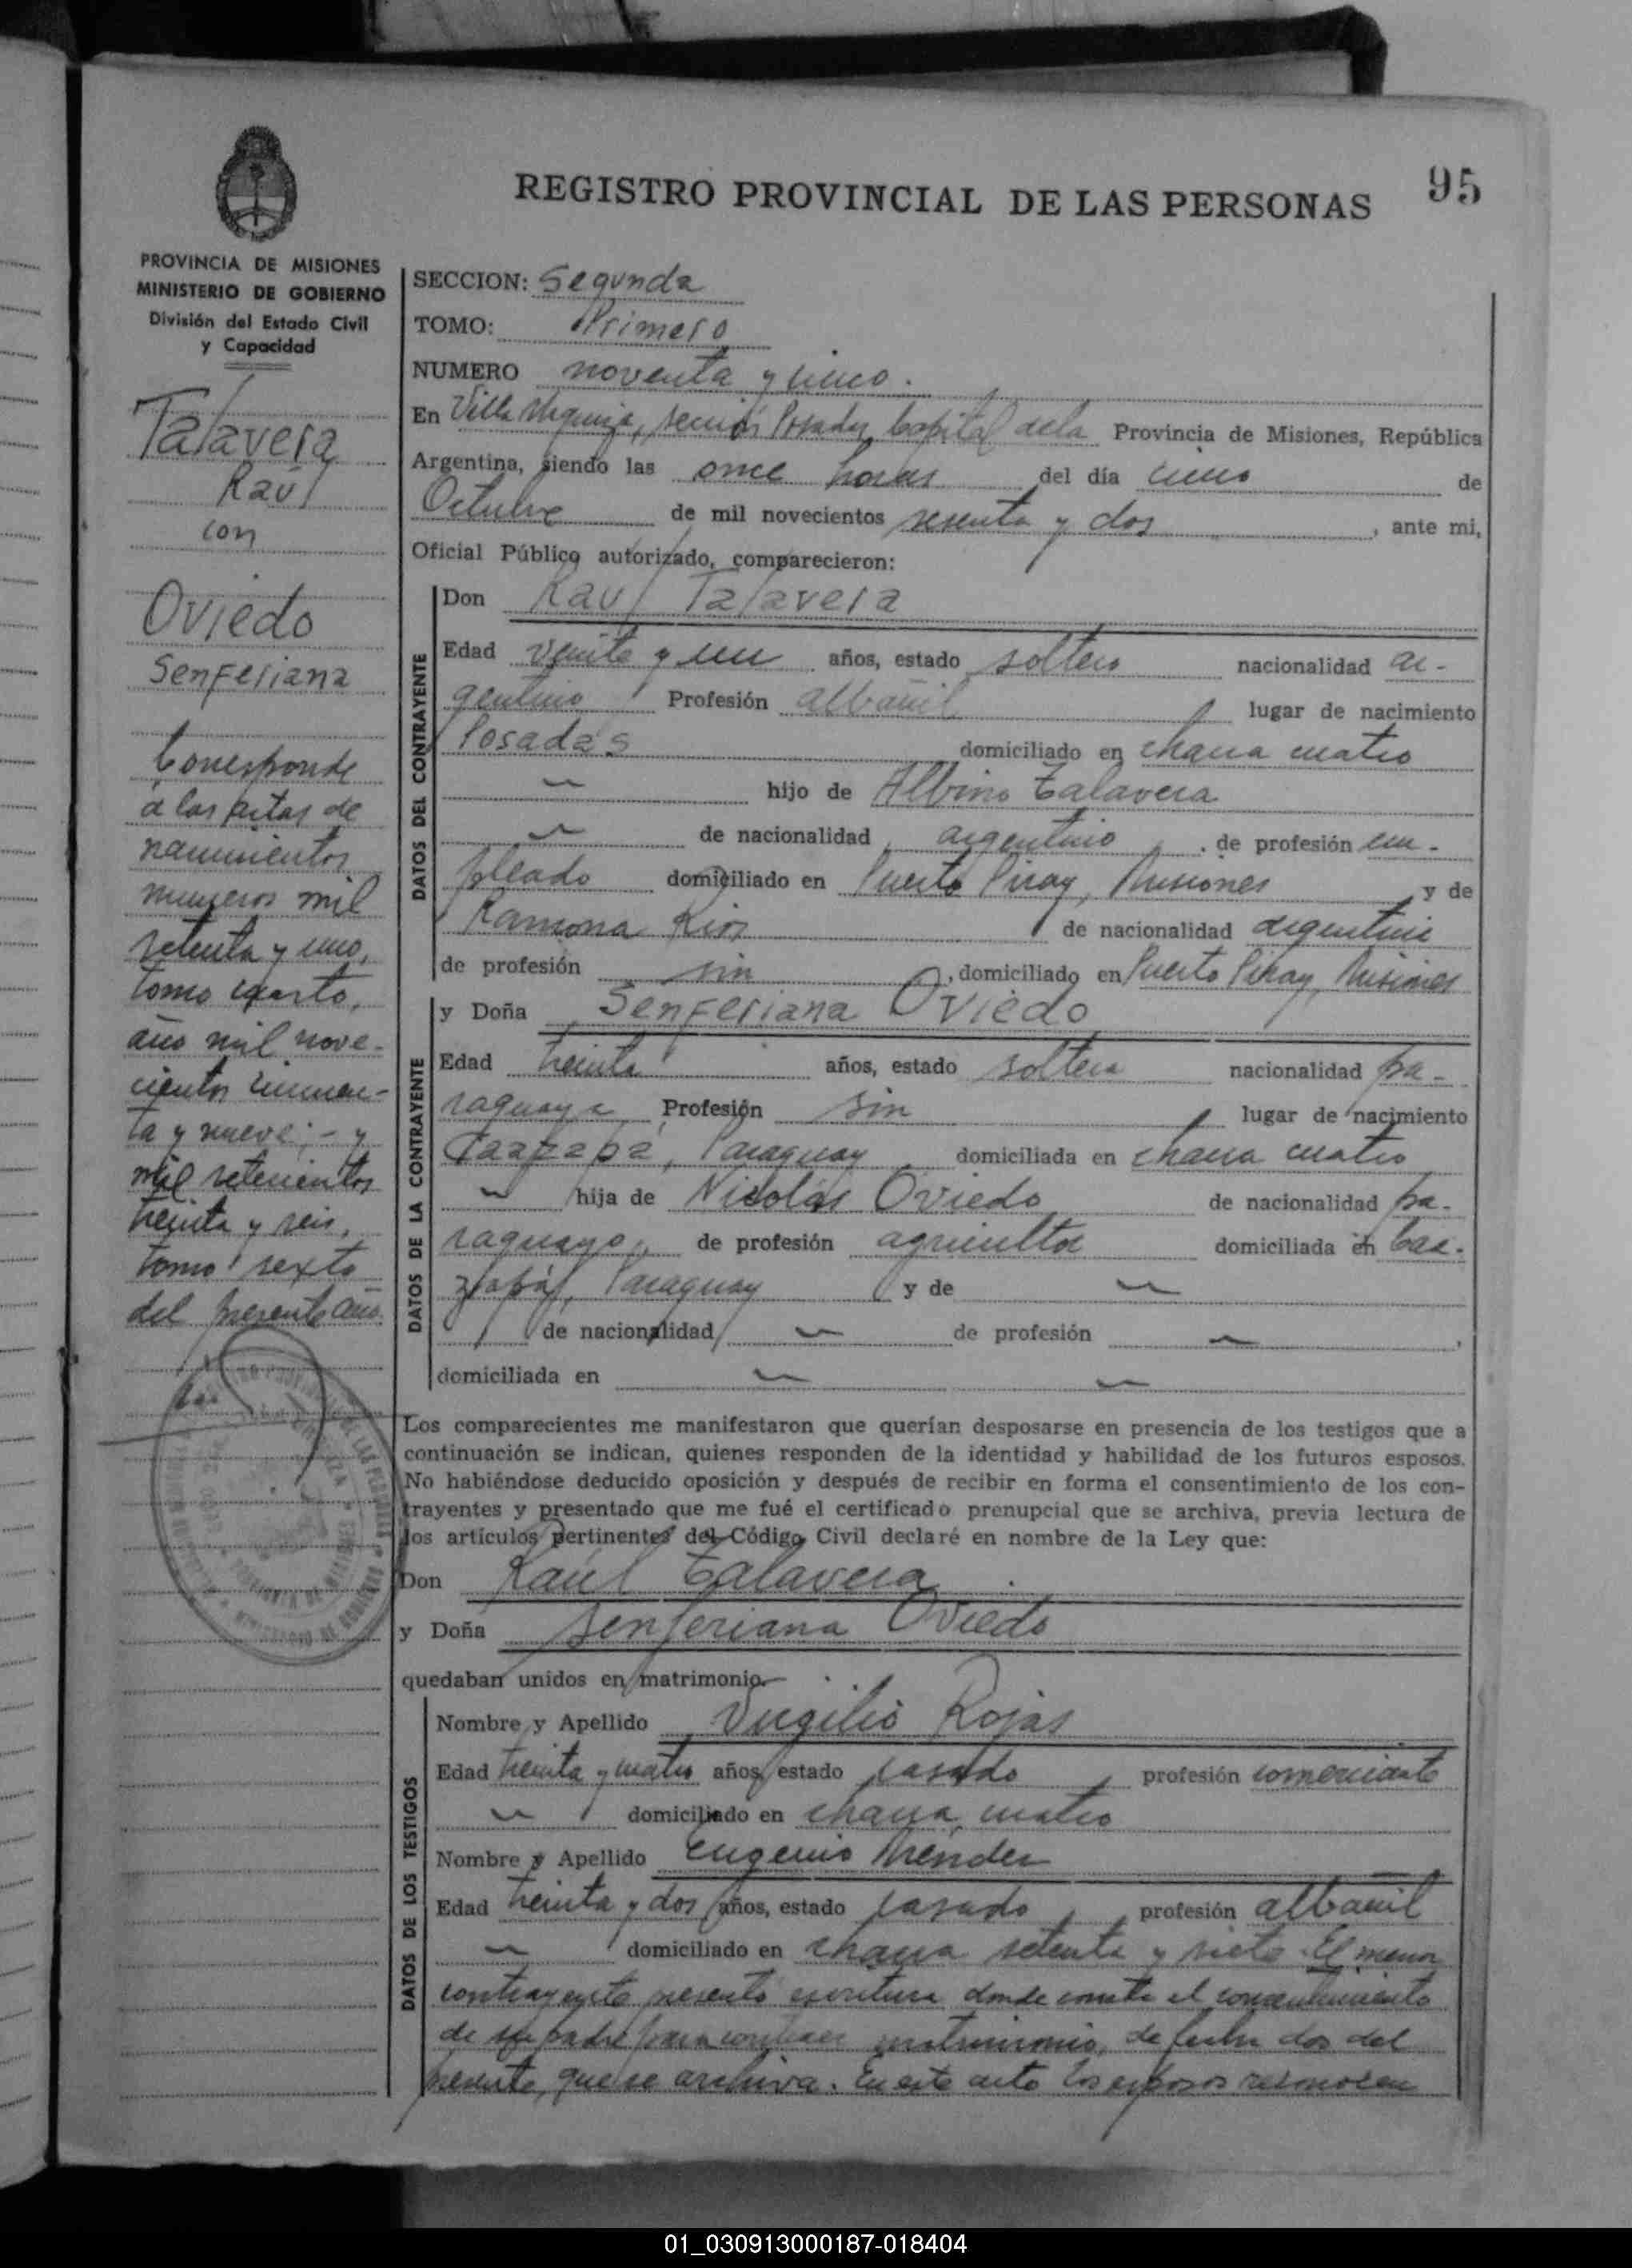 95
REGISTRO PROVINCIAL DE LAS PERSONAS
PROVINCIA DE MISIONES
MINISTERIO DE GOBIERNO
División del Estado Civil
y Capacidad
Talavera
Raúl
con
Oviedo
Senferiana
Corresponde
a las actas de
nacimientos
numeros mil
setenta y uno,
tomo cuarto,
año mil nove-
cientos cincuen-
ta y nueve; - y
mil setecientos
treinta y seis,
tomo sexto
del presente año.
SECCION: Segunda
TOMO: Primero
NUMERO noventa y cinco.
En Villa Urquiza, sección Posadas, Capital de la Provincia de Misiones, República
Argentina, siendo las once horas del día cinco de
Octubre de mil novecientos sesenta y dos, ante mi,
Oficial Público autorizado, comparecieron:
DATOS DEL CONTRAYENTE
Don Raúl Talavera
Edad veinte y un años, estado soltero nacionalidad ar-
gentino Profesión albañil lugar de nacimiento
Posadas domiciliado en chacra cuatro
hijo de Albino Talavera
de nacionalidad argentino, de profesión em-
pleado domiciliado en Puerto Piray, Misiones y de
Ramona Rios de nacionalidad argentina
de profesión sin, domiciliado en Puerto Piray, Misiones
DATOS DE LA CONTRAYENTE
y Doña Senferiana Oviedo
Edad treinta años, estado soltera nacionalidad pa-
raguaya Profesión sin lugar de nacimiento
Caazapá, Paraguay domiciliada en chacra cuatro
hija de Nicolás Oviedo de nacionalidad pa-
raguayo, de profesión agricultor domiciliada en Caa-
zapá, Paraguay y de
de nacionalidad de profesión ,
domiciliada en
Los comparecientes me manifestaron que querían desposarse en presencia de los testigos que a
continuación se indican, quienes responden de la identidad y habilidad de los futuros esposos.
No habiéndose deducido oposición y después de recibir en forma el consentimiento de los con-
trayentes y presentado que me fué el certificado prenupcial que se archiva, previa lectura de
los artículos pertinentes del Código Civil declaré en nombre de la Ley que:
Don Raúl Talavera
y Doña Senferiana Oviedo
quedaban unidos en matrimonio.
DATOS DE LOS TESTIGOS
Nombre y Apellido Virgilio Rojas
Edad treinta y cuatro años, estado casado, profesión comerciante
domiciliado en chacra cuatro
Nombre y Apellido Eugenio Méndez
Edad treinta y dos años, estado casado, profesión albañil
domiciliado en chacra setenta y siete. El menor
contrayente presentó escritura donde consta el consentimiento
de su padre para contraer matrimonio, de fecha dos del
presente, que se archiva. En este acto los esposos reconocen
01_030913000187-018404